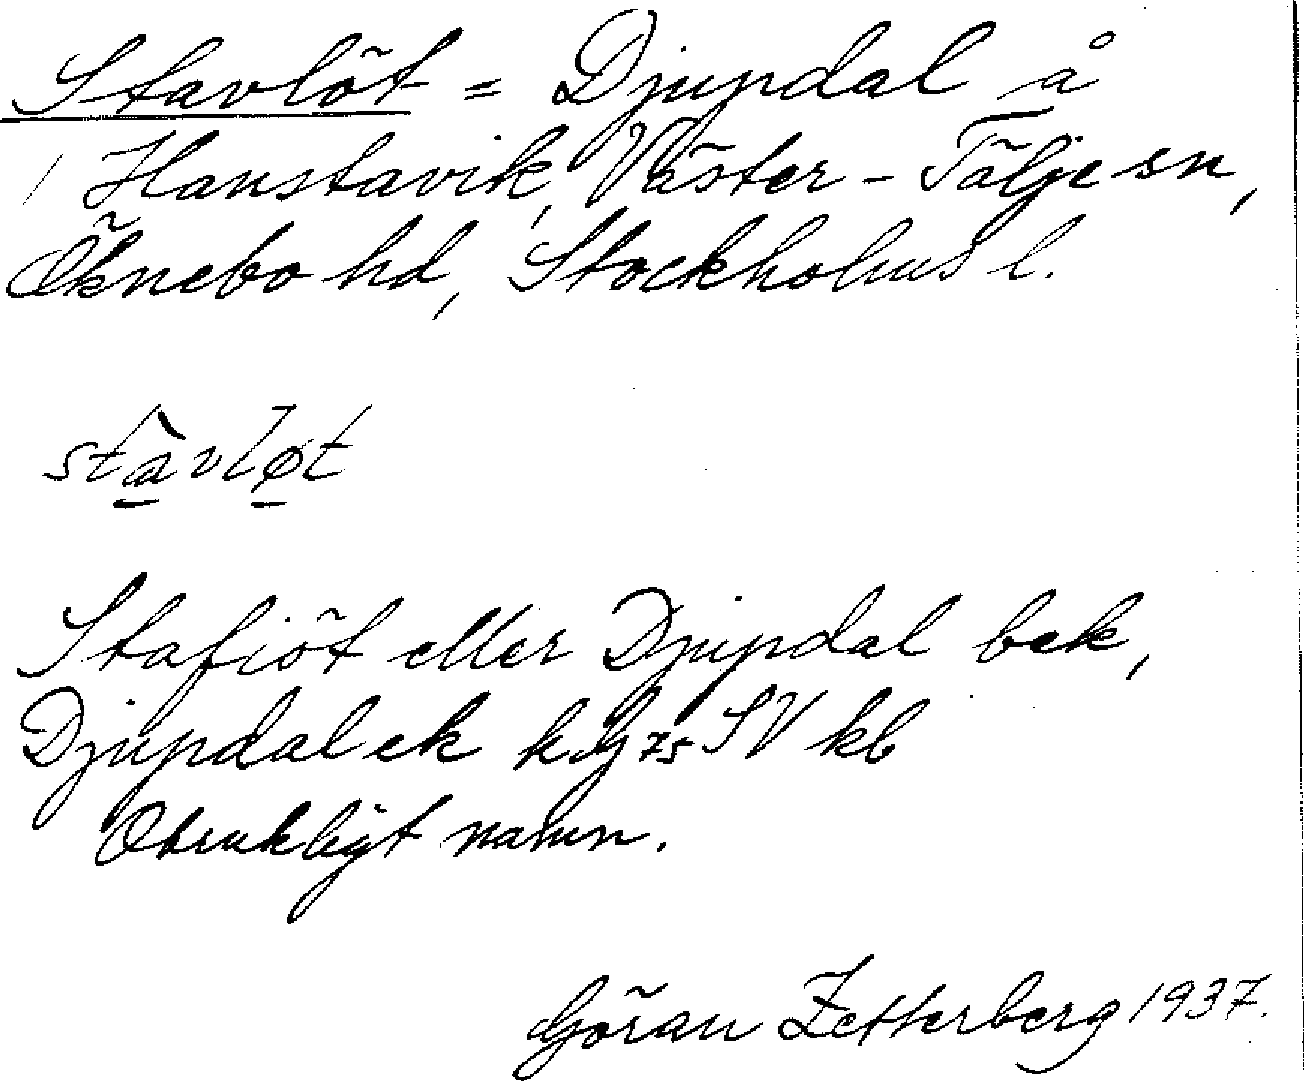 Stavlöt = Djupdal å
Hanstavik, Väster-Tälje sn,
Öknebo hd, Stockholms l.
stàvløt
Stafiöt eller Djupdal bek,
Djupdal ek k.Gj 75 SV kb
Obrukligt namn.
Göran Zetterberg 1937.